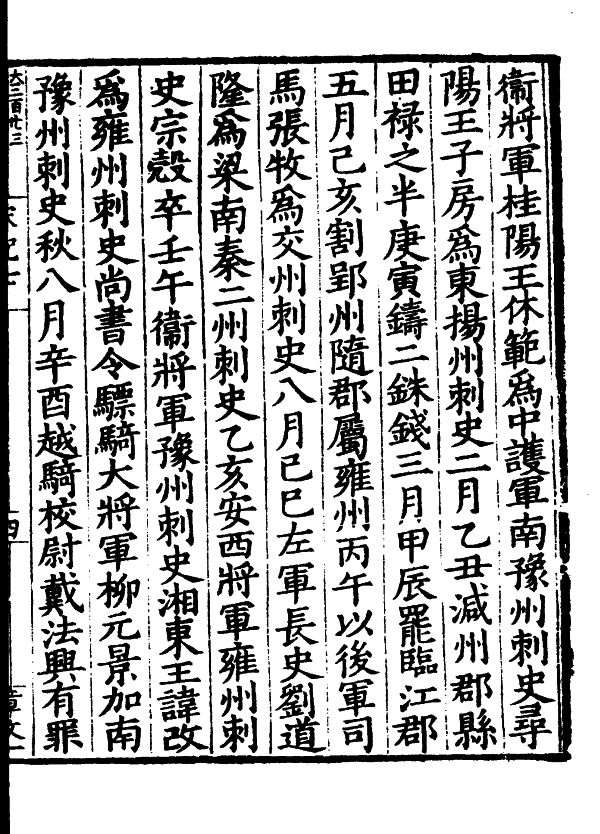 衞將軍桂陽王休範爲中護軍南豫州刺史尋
陽王子房爲東揚州刺史二月乙丑減州郡縣
田祿之半庚寅鑄二銖錢三月甲辰罷臨江郡
五月己亥割郢州隨郡屬雍州丙午以後軍司
馬張牧爲交州刺史八月己巳左軍長史劉道
隆爲梁南秦二州刺史乙亥安西將軍雍州刺
史宗殼卒壬午衞將軍豫州刺史湘東王諱改
爲雍州刺史尚書令驃騎大將軍柳元景加南
豫州刺史秋八月辛酉越騎校尉戴法興有罪
四